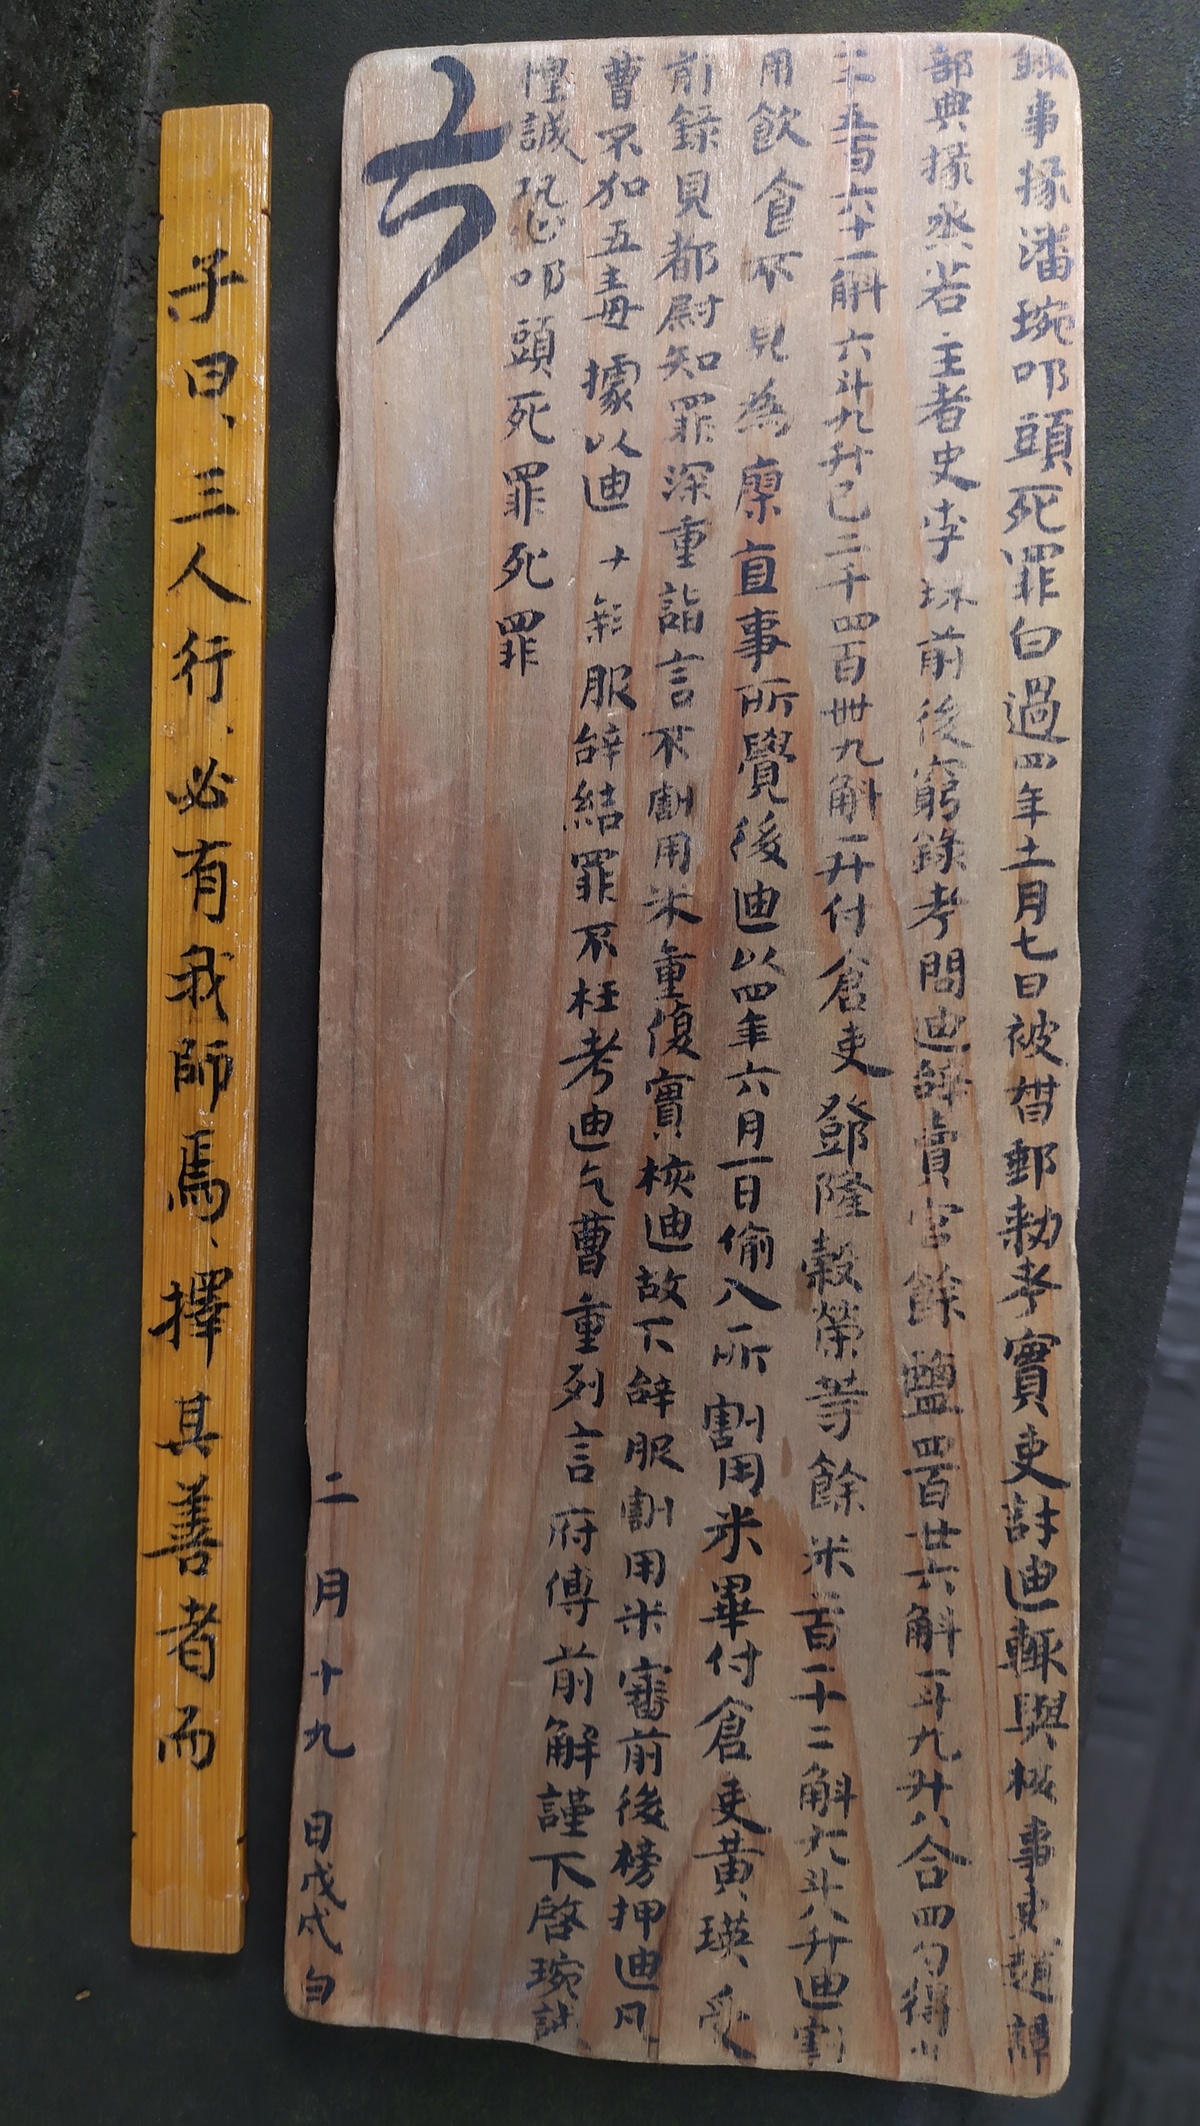 錄事掾潘琬叩頭死罪白過四年十一月七日被督郵勑考實吏許迪輒與核事吏趙譚
部典掾烝若主者史李珠前後窮錄考問迪辤賣官餘鹽四百廿六斛一斗九升八合四勺得米
二千五百六十一斛六斗九升已二千四百卌九斛一升付倉吏鄧隆穀榮等餘米一百一十二斛六斗八升迪割
用飲食不見為廖直事所覺後迪以四年六月一日偷入所割用米畢付倉吏黃瑛受
前錄見都尉知罪深重詣言不割用米重復實核迪故下辤服割用米審前後榜押迪凡
曹不加五毒據以迪今年服辤結罪不枉考迪乞曹重列言府傅前解謹下啓琬誠
惶誠恐叩頭死罪死罪
二月十九日戊戌白
子曰、三人行、必有我師焉、擇其善者而